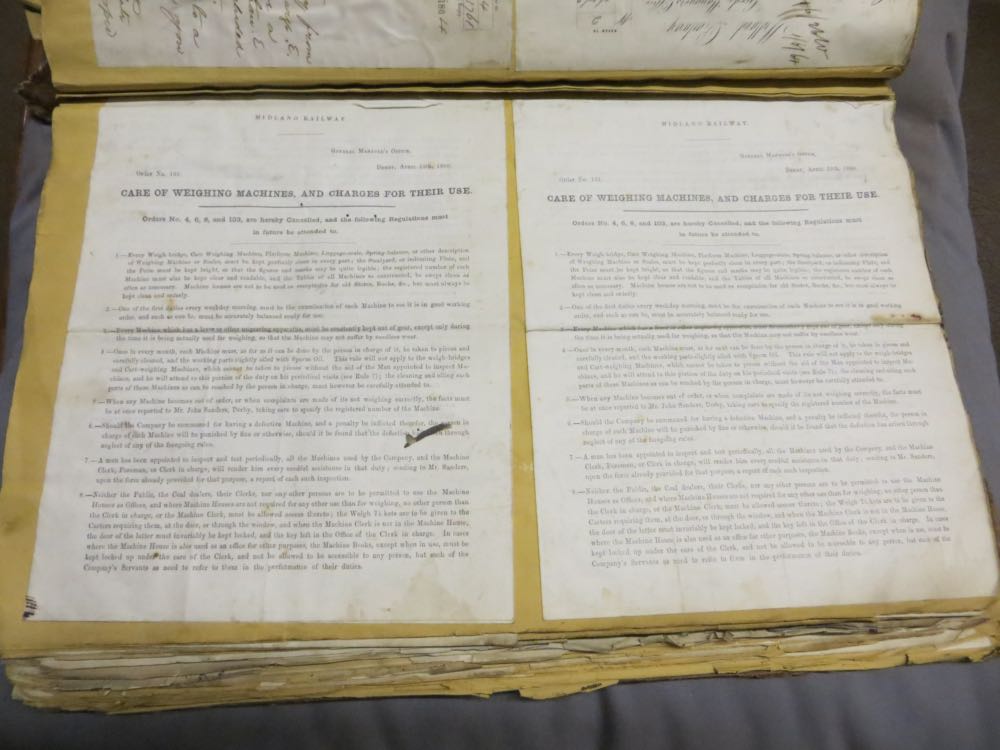 from
to a
MIDLAND RAILWAY.
GENERAL MANAGER'S OFFICE,
DERBY, APRIL
Order No.
CARE OF WEIGHING MACHINES, AND CHARGES FOR THEIR USE.
Orders No. 4, 6, 8, and 103, are hereby Cancelled, and the following Regulations must
in future be attended to.
1.—Every Weigh bridge, Cart Weighing Machine, Platform Machine, Luggage-scale, Spring-balance, or other description
of Weighing Machine or Scales, must be kept perfectly clean in every part; the Steelyard, or indicating Plate, and
the Poise must be kept bright, so that the figures and marks may be quite legible; the registered number of each
Machine must also be kept clear and readable, and the Tables of all Machines so constructed, be swept clean as
often as necessary. Machine houses are not to be used as receptacles for old Stores, Books, &c., but must always be
kept clean and orderly.
2.—One of the first duties every weekday morning, must be the examination of each Machine to see it is in good working
order, and such as can be, must be accurately balanced ready for use.
3.—Every Machine which has a lever or other ungearing apparatus, must be constantly kept out of gear, except only during
the time it is being actually used for weighing, so that the Machine may not suffer by needless wear.
4.—Once in every month, each Machine must, as far as it can be done by the person in charge of it, be taken to pieces and
carefully cleaned, and the working parts slightly oiled with Sperm Oil. This rule will not apply to the weigh bridges
and Cart-weighing Machines, which cannot be taken to pieces without the aid of the Man appointed to inspect Ma-
chines, and he will attend to this portion of the duty on his periodical visits (see Rule 7); the cleaning and oiling such
parts of these Machines as can be reached by the person in charge, must however be carefully attended to.
5.—When any Machine becomes out of order, or when complaints are made of its not weighing correctly, the facts must
be at once reported to Mr. John Sanders, Derby, taking care to specify the registered number of the Machine.
6.—Should the Company be summoned for having a defective Machine, and a penalty be inflicted therefor, the person in
charge of such Machine will be punished by fine or otherwise, should it be found that the defection through
neglect of any of the foregoing rules.
7.—A man has been appointed to inspect and test periodically, all the Machines used by the Company, and the Machine
Clerk, Foreman, or Clerk in charge, will render him every needful assistance in that duty; sending to Mr. Sanders,
upon the form already provided for that purpose, a report of each such inspection.
8.—Neither the Public, the Coal dealers, their Clerks, nor any other persons are to be permitted to use the Machine
Houses as Offices, and where Machine Houses are not required for any other use than for weighing, no other person than
the Clerk in charge, or the Machine Clerk, must be allowed access thereto; the Weigh Tickets are to be given to the
Carters requiring them, at the door, or through the window, and when the Machine Clerk is not in the Machine House,
the door of the latter must invariably be kept locked, and the key left in the Office of the Clerk in charge. In cases
where the Machine House is also used as an office for other purposes, the Machine Books, except when in use, must be
kept locked up under the care of the Clerk, and not be allowed to be accessible to any person, but such of the
Company's Servants as need to refer to them in the performance of their duties.
MIDLAND RAILWAY.
GENERAL MANAGER'S OFFICE,
DERBY, APRIL
Order No.
CARE OF WEIGHING MACHINES, AND CHARGES FOR THEIR USE.
Orders No. 4, 6, 8, and 103, are hereby Cancelled, and the following Regulations must
in future be attended to.
1.—Every Weigh bridge, Cart Weighing Machine, Platform Machine, Luggage-scale, Spring-balance, or other description
of Weighing Machine or Scales, must be kept perfectly clean in every part; the Steelyard, or indicating Plate, and
the Poise must be kept bright, so that the figures and marks may be quite legible; the registered number of each
Machine must also be kept clear and readable, and the Tables of all Machines so constructed, be swept clean as
often as necessary. Machine houses are not to be used as receptacles for old Stores, Books, &c., but must always be
kept clean and orderly.
2.—One of the first duties every weekday morning, must be the examination of each Machine to see it is in good working
order, and such as can be, must be accurately balanced ready for use.
3.—Every Machine which has a lever or other ungearing apparatus, must be constantly kept out of gear, except only during
the time it is being actually used for weighing, so that the Machine may not suffer by needless wear.
4.—Once in every month, each Machine must, as far as it can be done by the person in charge of it, be taken to pieces and
carefully cleaned, and the working parts slightly oiled with Sperm Oil. This rule will not apply to the weigh bridges
and Cart-weighing Machines, which cannot be taken to pieces without the aid of the Man appointed to inspect Ma-
chines, and he will attend to this portion of the duty on his periodical visits (see Rule 7); the cleaning and oiling such
parts of these Machines as can be reached by the person in charge, must however be carefully attended to.
5.—When any Machine becomes out of order, or when complaints are made of its not weighing correctly, the facts must
be at once reported to Mr. John Sanders, Derby, taking care to specify the registered number of the Machine.
6.—Should the Company be summoned for having a defective Machine, and a penalty be inflicted therefor, the person in
charge of such Machine will be punished by fine or otherwise, should it be found that the defect has arisen through
neglect of any of the foregoing rules.
7.—A man has been appointed to inspect and test periodically, all the Machines used by the Company, and the Machine
Clerk, Foreman, or Clerk in charge, will render him every needful assistance in that duty; sending to Mr. Sanders,
upon the form already provided for that purpose, a report of each such inspection.
8.—Neither the Public, the Coal dealers, their Clerks, nor any other persons are to be permitted to use the Machine
Houses as Offices, and where Machine Houses are not required for any other use than for weighing, no other person than
the Clerk in charge, or the Machine Clerk, must be allowed access thereto; the Weigh Tickets are to be given to the
Carters requiring them, at the door, or through the window, and when the Machine Clerk is not in the Machine House,
the door of the latter must invariably be kept locked, and the key left in the Office of the Clerk in charge. In cases
where the Machine House is also used as an office for other purposes, the Machine Books, except when in use, must be
kept locked up under the care of the Clerk, and not be allowed to be accessible to any person, but such of the
Company's Servants as need to refer to them in the performance of their duties.